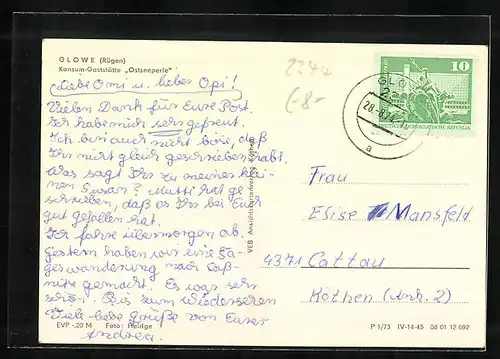 GLOWE (Rügen)
Konsum-Gaststätte „Ostseeperle"
Liebe Omi u. lieber Opi!
Vielen Dank für Eure Post.
Ich habe mich sehr gefreut.
Ich bin auch nicht böse, daß
Ihr nicht gleich geschrieben habt.
Was sagt Ihr zu meiner klei-
nen Susan? Mutti hat ge-
schrieben, daß es Ihr bei Euch
gut gefallen hat.
Ich fahre übermorgen ab.
Gestern haben wir eine Ta-
geswanderung nach Saß-
nitz gemacht. Es war sehr
schön. Bis zum Wiedersehen
Viele liebe Grüße von Eurer
Andrea.
EVP -.20 M Foto: Heldge
VEB Ansichtskartenfabrik Köthen
2344
(-8-
10
DEUTSCHE DEMOKRATISCHE REPUBLIK
GLO
2
28.-8.74
a
Frau
Elise Mansfeld
4371 Cattau
Köthen (Anh. 2)
P 1/73 IV-14-45 06 01 12 092